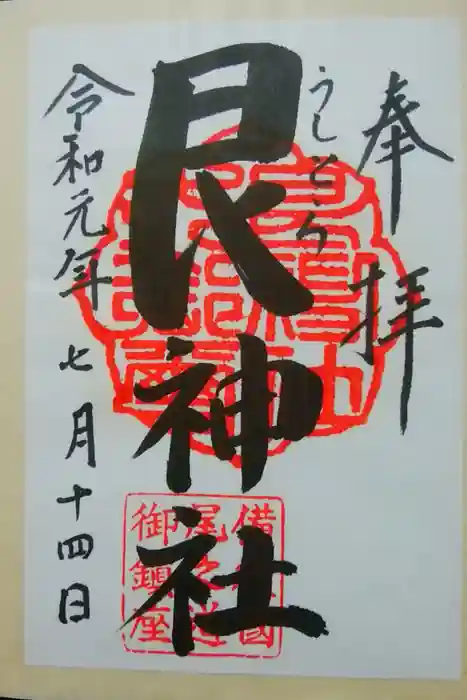 奉拝
うしとら
艮神社
令和元年七月十四日
備後國
尾之道
御鎮座